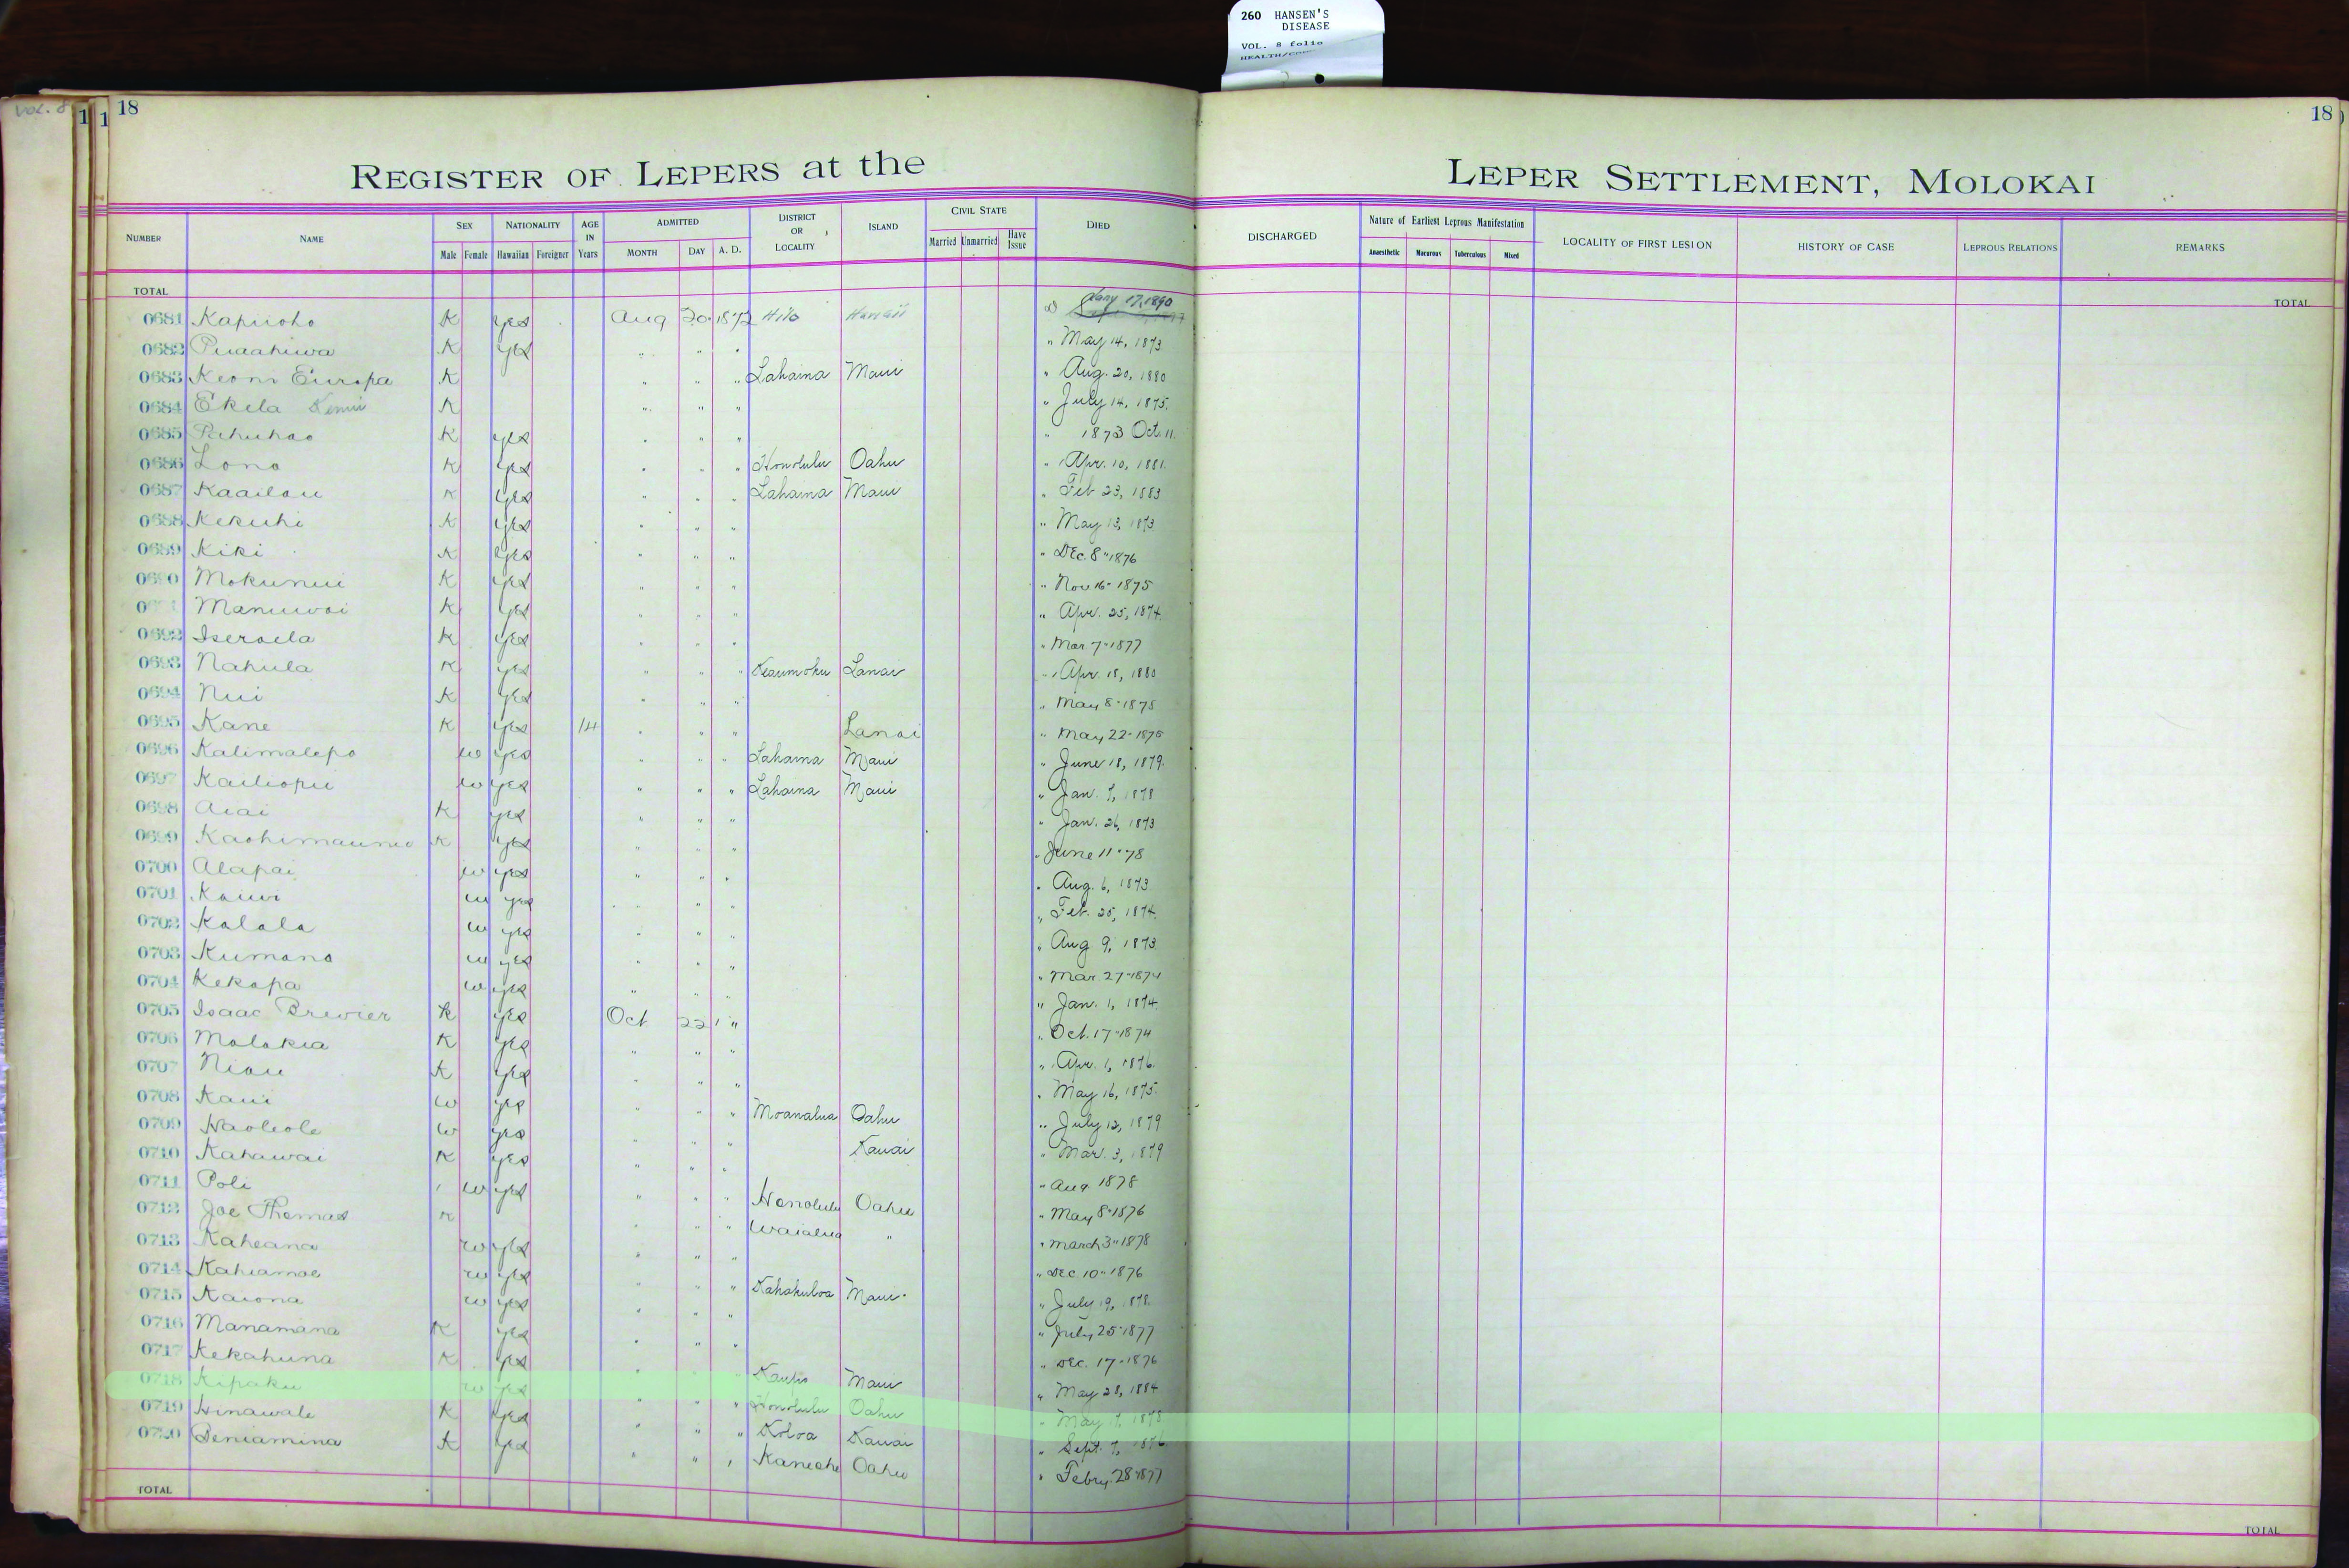 260 HANSEN'S
DISEASE
VOL. 8 folio
VOL. 8
18
18
REGISTER OF LEPERS at the LEPER SETTLEMENT, MOLOKAI
NUMBER NAME SEX Male Female NATIONALITY Hawaiian Foreigner AGE IN Years ADMITTED MONTH DAY A. D. DISTRICT OR LOCALITY ISLAND CIVIL STATE Married Unmarried Have Issue DIED DISCHARGED Nature of Earliest Leprous Manifestation Anaesthetic Macurous Tuberculous Mixed LOCALITY OF FIRST LESION HISTORY OF CASE LEPROUS RELATIONS REMARKS
TOTAL TOTAL
0681 Kapiioho K yes Aug 20 1872 Hilo Hawaii D Jany 17, 1890
0682 Puaahiwa K yes " " " " May 14, 1873
0683 Keoni Europa K " " " Lahaina Maui " Aug. 20, 1880
0684 Ekela K " " " " July 14, 1875.
0685 Pahuhao K yes " " " " 1873 Oct. 11.
0686 Lono K yes " " " Honolulu Oahu " Apr. 10, 1881.
0687 Kaailau K yes " " " Lahaina Maui " Feb 23, 1883
0688 Kekuhi K yes " " " " May 13, 1873
0689 Kiki K yes " " " " DEC. 8" 1876
0690 Mokunui K yes " " " " Nov 16 - 1875
Manuwai K yes " " " " Apr. 25, 1874.
0692 Iseraela K yes " " " " Mar 7" 1877
0693 Nahula K yes " " " Keaumoku Lanai " Apr. 18, 1880
0694 Nui K yes " " " " May 8 - 1875
0695 Kane K yes 14 " " " Lanai " May 22 - 1875
0696 Kalimalepo w yes " " " Lahaina Maui " June 18, 1879.
0697 Kailiopu w yes " " " Lahaina Maui " Jan. 7, 1878
0698 Aiai K yes " " " " Jan. 26, 1873
0699 Kaohimaunu K yes " " " " June 11 " 78
0700 Alapai w yes " " " " Aug. 6, 1873
0701 Kauwi w yes " " " " Feb. 25, 1874.
0702 Kalala w yes " " " " Aug 9, 1873.
0703 Kumano w yes " " " " Mar. 27 - 1874
0704 Kekapa w yes " " " " Jan. 1, 1874.
0705 Isaac Brewier K yes Oct 22 " " Oct. 17 - 1874
0706 Molokia K yes " " " " Apr. 1, 1876.
0707 Niau K yes " " " " May 16, 1875.
0708 Kaui w yes " " " Moanalua Oahu " July 12, 1879
0709 Haoleole w yes " " " Kauai " Mar. 3, 1879
0710 Kahawai K yes " " " " Aug 1878
0711 Poli w yes " " " Honolulu Oahu " May 8 - 1876
0712 Joe Thomas K " " " Waialua " " March 3" 1878
0713 Kaheana w yes " " " " DEC. 10" 1876
0714 Kahiamoe w yes " " " Kahakuloa Maui " July 19, 1878.
0715 Kaiona w yes " " " " July 25 1877
0716 Manamana K yes " " " " DEC. 17 - 1876
0717 Kekahuna K yes " " " Kaupo Maui " May 28, 1884.
0718 Kipaku w yes " " " Honolulu Oahu " May 7, 1878
0719 Hinawale K yes " " " Koloa Kauai " Sept. 7, 1876
0720 Beniamina K yes " " " Kaneohe Oahu " Febry. 28" 1877
TOTAL TOTAL